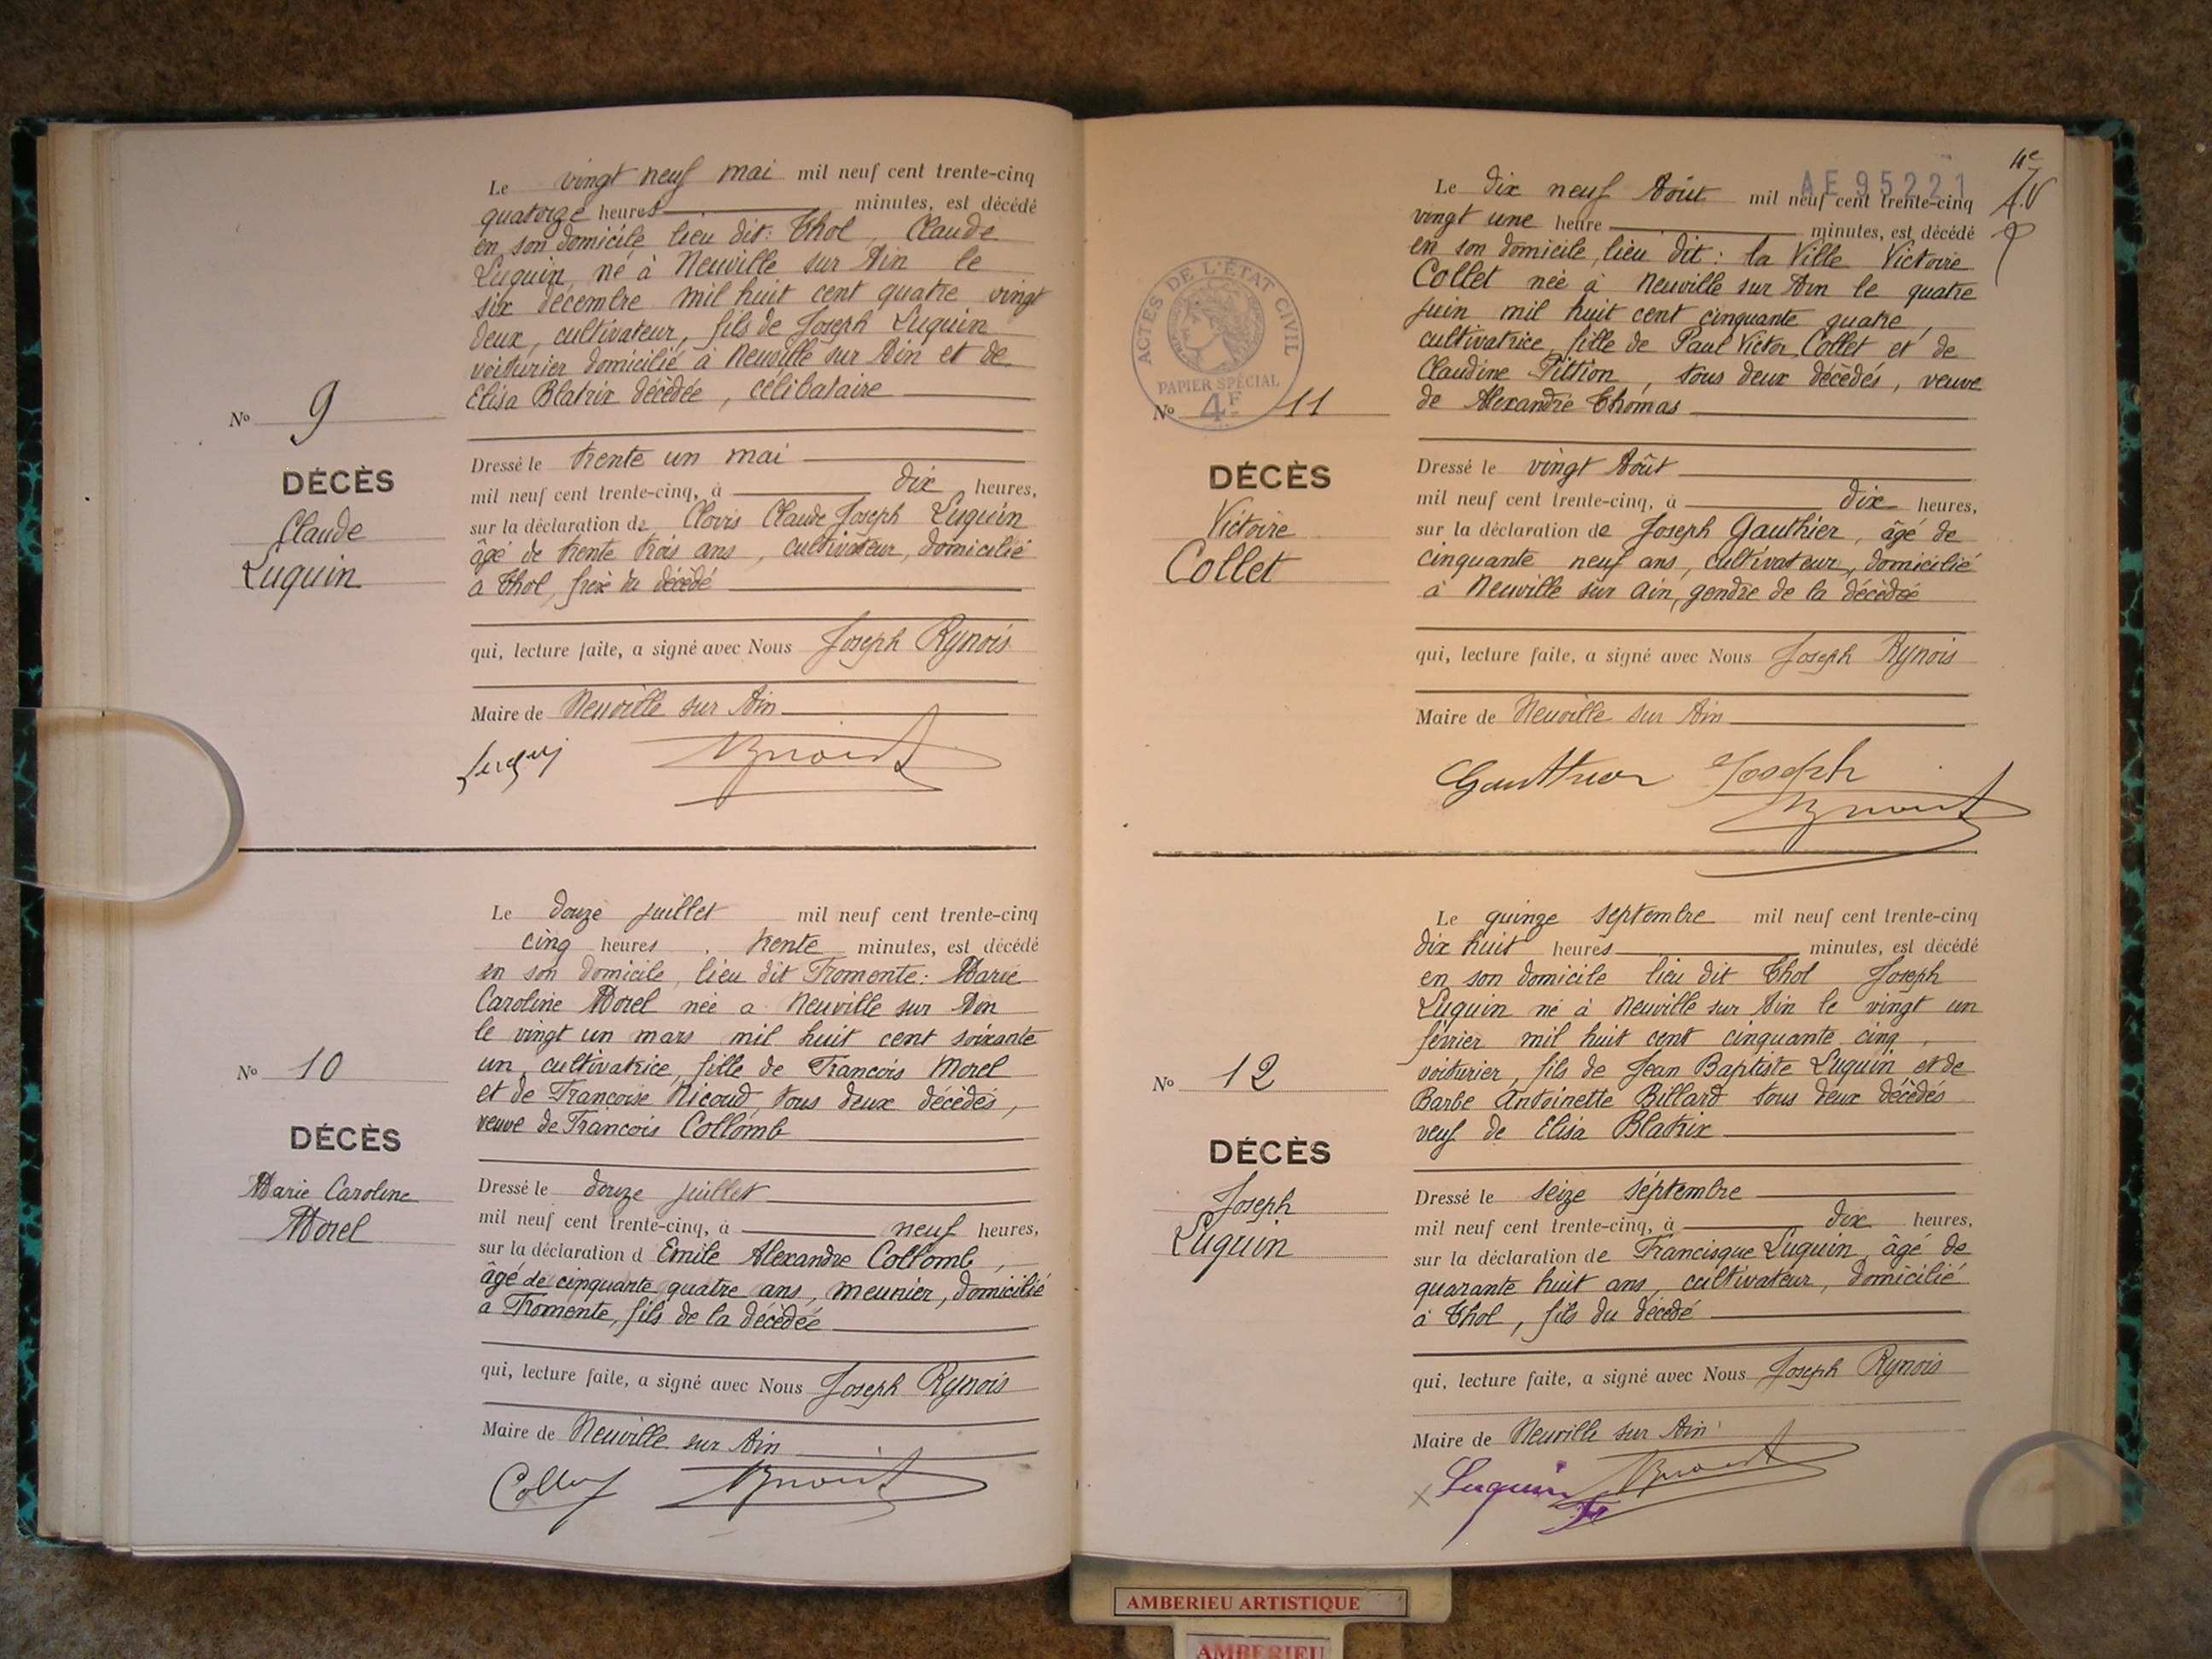 Le vingt neuf mai mil neuf cent trente-cinq
quatorze heures minutes, est décédé
en son domicile, lieu dit: Thol, Claude
Luquin, né à Neuville sur Ain le
six décembre mil huit cent quatre vingt
deux, cultivateur, fils de Joseph Luquin
voiturier domicilié à Neuville sur Ain et de
Elisa Blatrix décédée, célibataire
No 9
DÉCÈS
Claude
Luquin
Dressé le trente un mai
mil neuf cent trente-cinq, à dix heures,
sur la déclaration de Clovis Claude Joseph Luquin
âgé de trente trois ans, cultivateur, domicilié
à Thol, frère du décédé
qui, lecture faite, a signé avec Nous Joseph Rynois
Maire de Neuville sur Ain
Le douze juillet mil neuf cent trente-cinq
cinq heures trente minutes, est décédé
en son domicile, lieu dit Fromente: Marie
Caroline Morel née a Neuville sur Ain
le vingt un mars mil huit cent soixante
un, cultivatrice, fille de François Morel
et de Françoise Nicoud, tous deux décédés,
veuve de François Collomb
No 10
DÉCÈS
Marie Caroline
Morel
Dressé le douze juillet
mil neuf cent trente-cinq, à neuf heures,
sur la déclaration d Emile Alexandre Collomb,
âgé de cinquante quatre ans, meunier, domicilié
a Fromente, fils de la décédée
qui, lecture faite, a signé avec Nous Joseph Rynois
Maire de Neuville sur Ain
AE95221
Le dix neuf Août mil neuf cent trente-cinq
vingt une heure minutes, est décédé
en son domicile, lieu dit: la Ville Victoire
Collet née à Neuville sur Ain le quatre
juin mil huit cent cinquante quatre,
cultivatrice, fille de Paul Victor Collet et de
Claudine Pittion, tous deux décédés, veuve
de Alexandre Thomas
ACTES DE L'ÉTAT CIVIL
PAPIER SPÉCIAL
4F
No 11
DÉCÈS
Victoire
Collet
Dressé le vingt Août
mil neuf cent trente-cinq, à dix heures,
sur la déclaration de Joseph Gauthier, âgé de
cinquante neuf ans, cultivateur, domicilié
à Neuville sur Ain, gendre de la décédée
qui, lecture faite, a signé avec Nous Joseph Rynois
Maire de Neuville sur Ain
Gauthier Joseph
Le quinze septembre mil neuf cent trente-cinq
dix huit heures minutes, est décédé
en son domicile lieu dit Thol Joseph
Luquin né à Neuville sur Ain le vingt un
février mil huit cent cinquante cinq,
voiturier, fils de Jean Baptiste Luquin et de
Barbe Antoinette Billard tous deux décédés
veuf de Elisa Blatrix
No 12
DÉCÈS
Joseph
Luquin
Dressé le seize séptembre
mil neuf cent trente-cinq, à dix heures,
sur la déclaration de Francisque Luquin, âgé de
quarante huit ans, cultivateur, domicilié
à Thol, fils du décédé
qui, lecture faite, a signé avec Nous Joseph Rynois
Maire de Neuville sur Ain
Luquin
AMBERIEU ARTISTIQUE
AMBERIEU